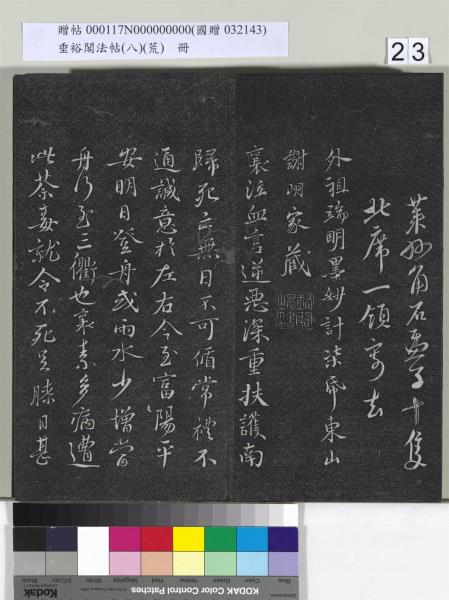 贈帖 000117N000000000(國贈 032143)
垂裕閣法帖(八)(荒) 冊
23
萊石 十隻
北席一領寄去
外祖端明墨妙計柒帋東山
謝明家藏
襄泣血言逆惡深重扶護南
歸死亡無日不可循常禮不
通誠意於左右今至富陽平
安明日登舟或雨水少增當
舟行至三衢也襄素多病遭
此荼毒就令不死羸瘠日甚
Blue Cyan Green Yellow Red Magenta White 3/Color Black
Kodak Color Control Patches
KODAK